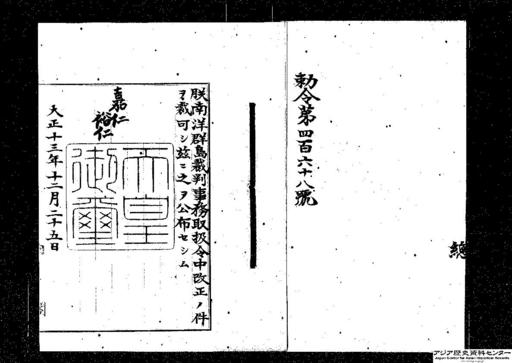 勅令第四百六十八號
朕南洋群島裁判事務取扱令中改正ノ件
ヲ裁可シ茲ニ之ヲ公布セシム
嘉仁
裕仁
天皇御璽
大正十三年十二月二十五日
總
アジア歴史資料センター
Japan Center for Asian Historical Records